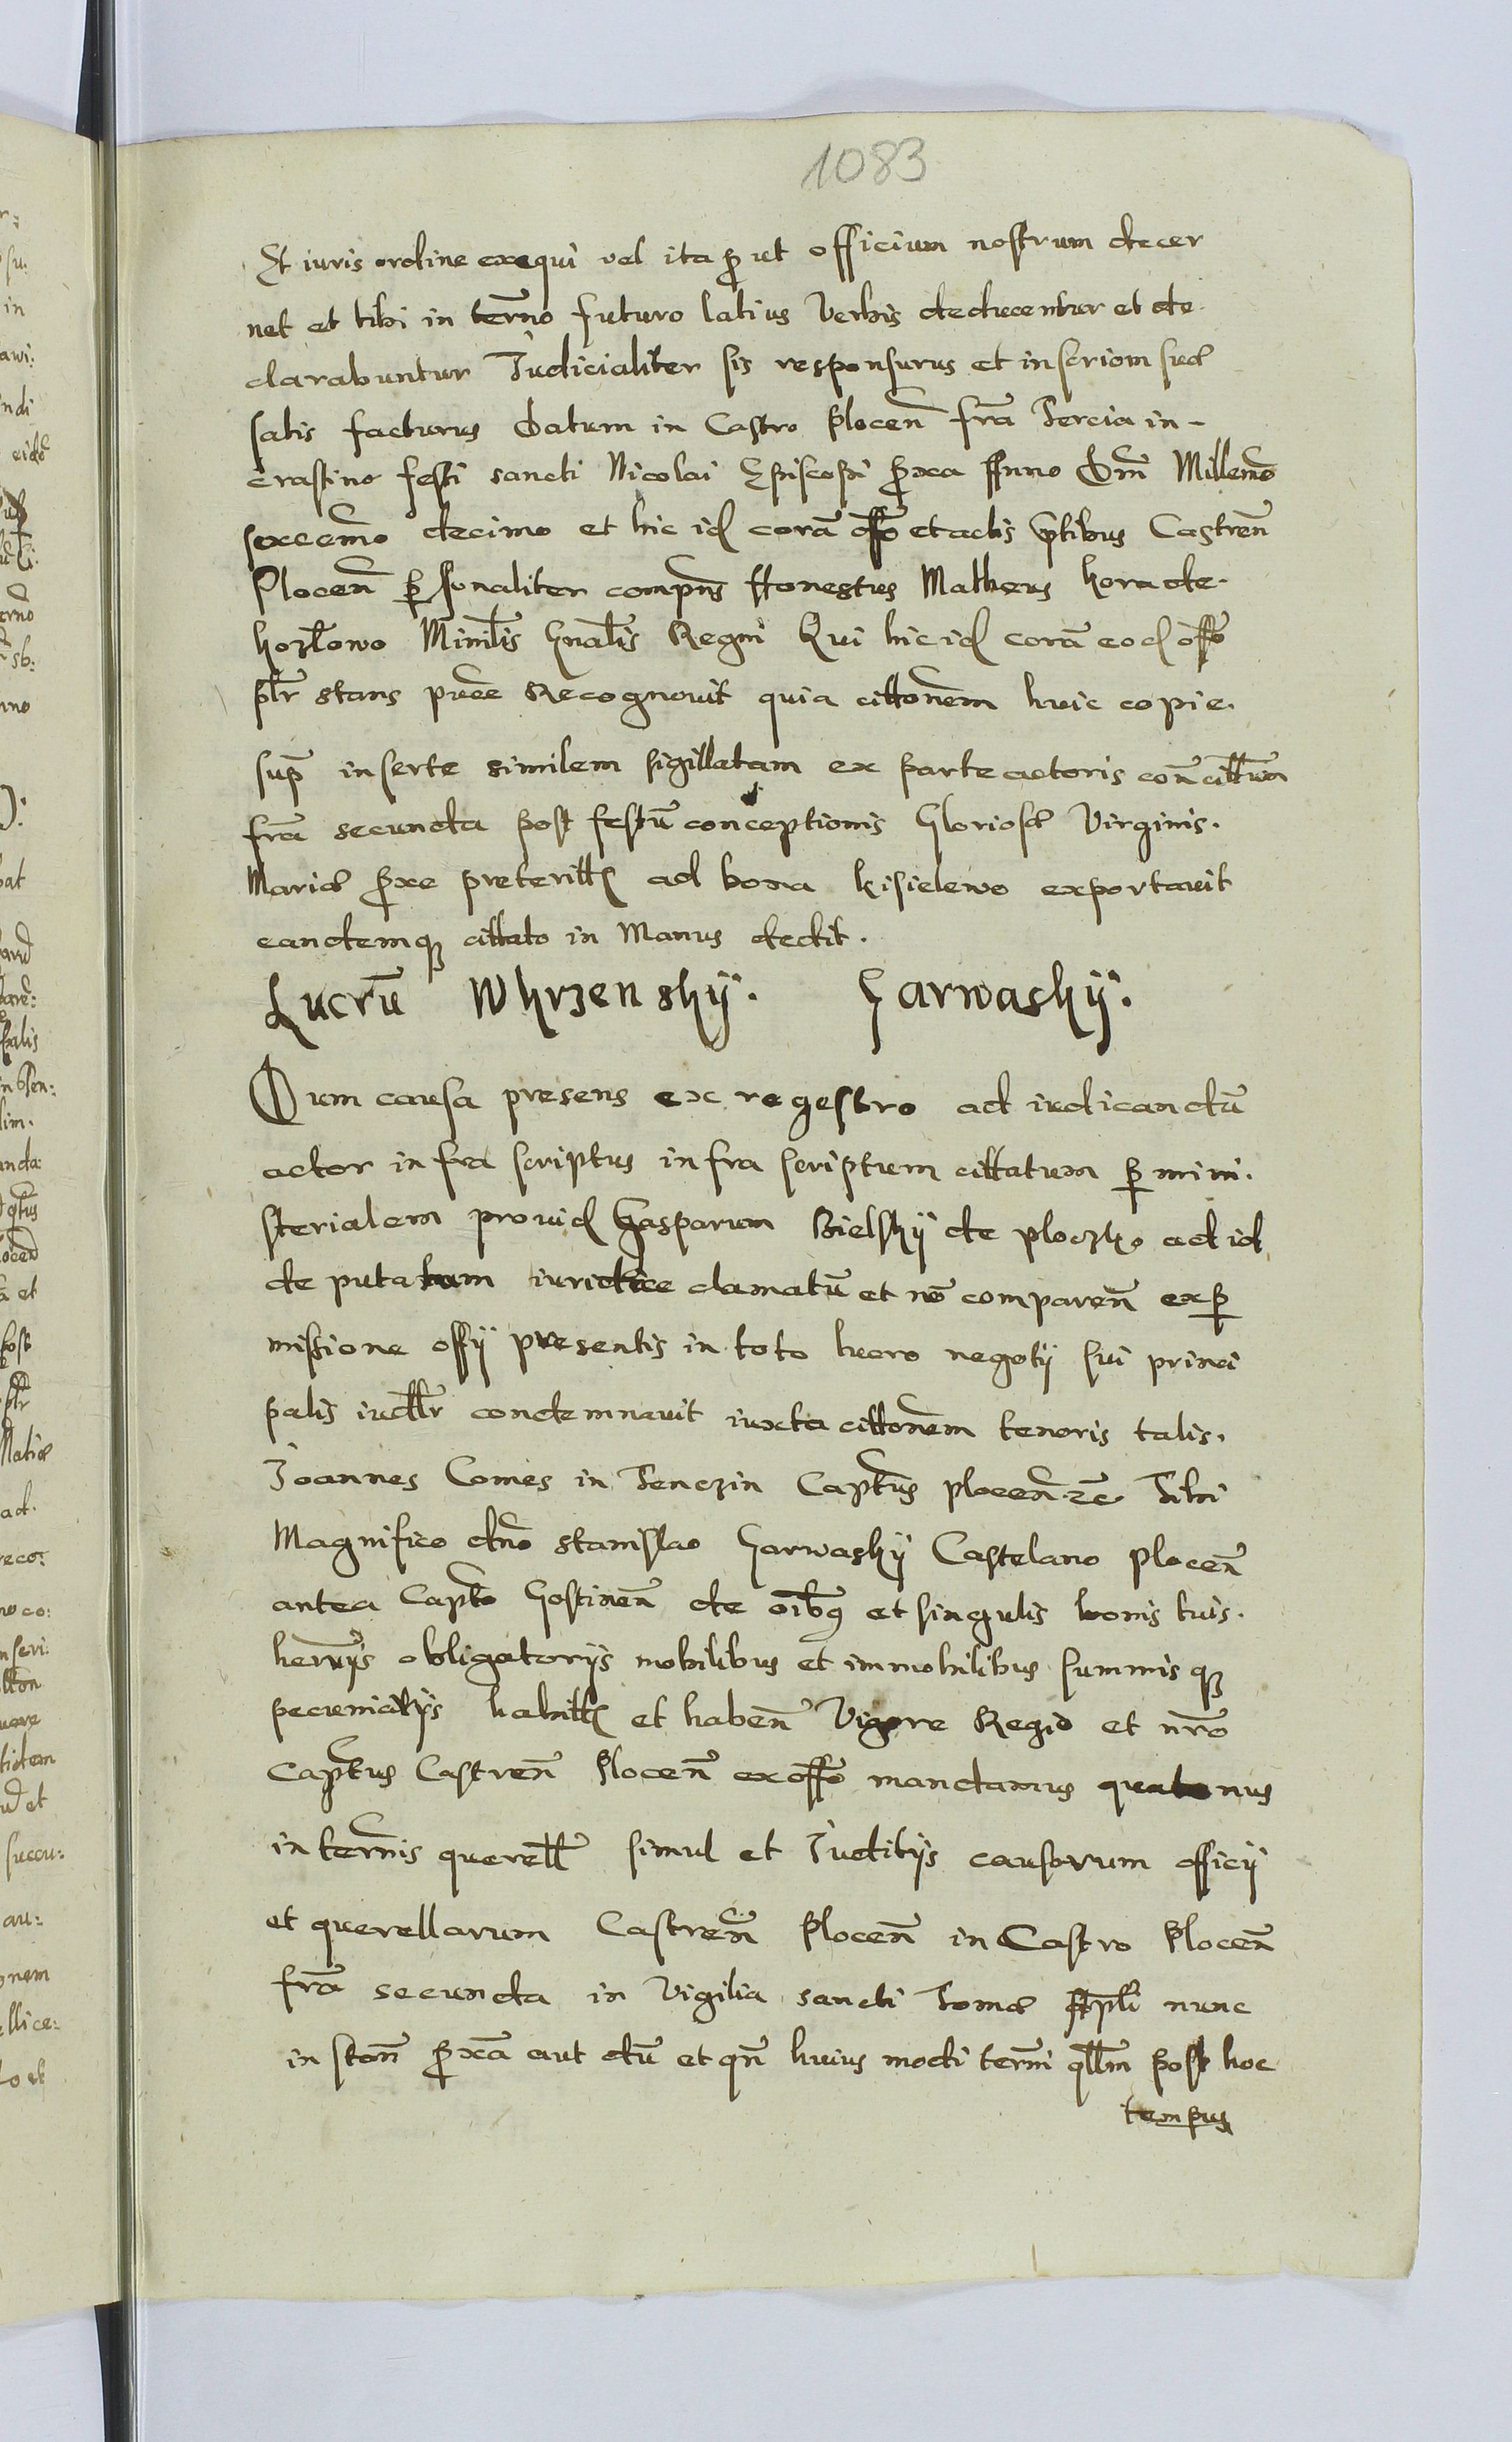 1083
Et iuris ordine exequi vel ita put officium nostrum decer
net et tibi in termo futuro latius verbis deducentur et de
clarabuntur Iudicialiter sis responsurus et inscriom suæ
satis facturus Datum in Castro Plocen fra Tercia in-
crastino festi sancti Nicolai Episcopi pxa Anno Dni Millemo
sexcemo decimo et hic id cora offo et actis ptibus Castren
Plocen psonaliter compns Honestus Matheus hora de
Minlis Gnalis Regni Qui hic id cora eod offo
plr stans Recognovit quia cittonem huic copie.
sup inserte similem sigillatam ex parte actoris con cittum
fra secunda post festu conceptionis Gloriosæ Virginis.
Mariæ pxe preteritt ad bona Kisielewo exportavit
eandemq cittato in Manus dedit.
Lucru Whrzenskÿ. Garwaskÿ.
Cum causa presens ex regestro ad iudicandu
actor infra scriptus infra scriptum cittatum p mini.
sterialem provid Gasparum Bielskÿ de ploczko ad id
deputatum iuridice clamatu et no comparen ex p
missione offÿ presentis in toto lucro negotÿ sui princi
palis iudllr condemnavit iuxta cittonem tenoris talis.
Joannes Comes in Tenczin Captus plocen zc Tibi
Magnifico dno Stanislao Garwaskÿ Castelano plocen
antea Capto Gostinen de oibq et singulis bonis tuis.
herÿs obligatorÿs mobilibus et immobilibus summis q
pecuniarÿs habitt et haben Vigore Regio et nro
Captus Castren Plocen ex offo mandamus quatenus
in termis querell simul et Iuditÿs causarum officÿ
et querellarum Castren Plocen in Castro Plocen
fra secunda in Vigilia sancti Tomæ Appli nunc
in stan pxa aut du et qn huius modi termi qllm post hoc
tempus